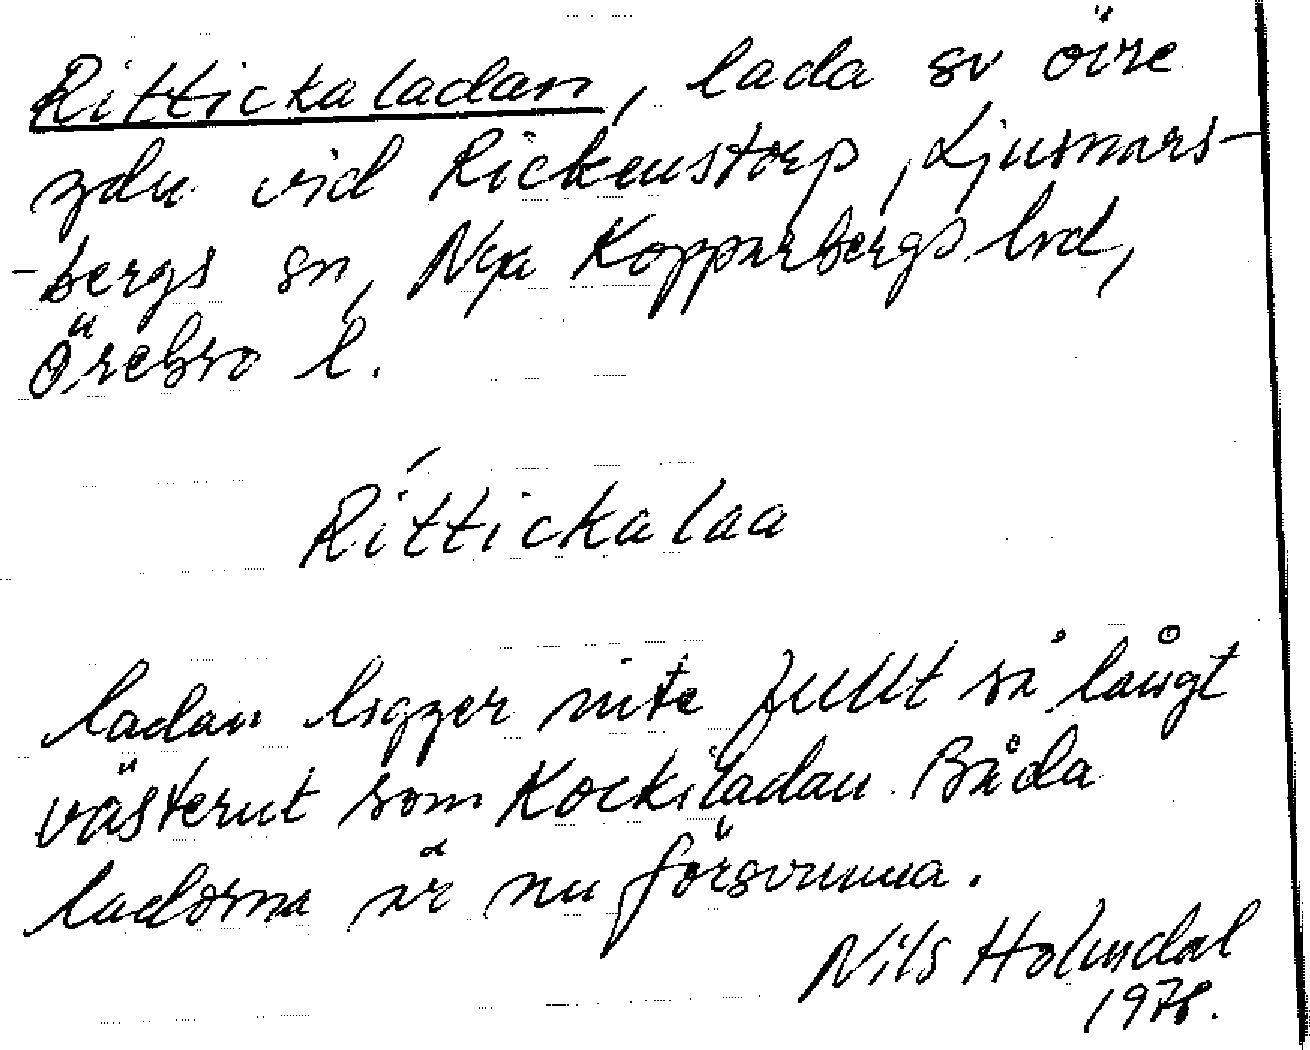 Rittickaladan, lada sv övre
ydn vid Rickenstorp, Ljusnars-
-bergs sn, Nya Kopparbergs bd,
Örebro l.
Ríttickalaa
ladan ligger inte fullt så långt
västerut som Kockiladan. Båda
ladorna är nu försvunna.
Nils Holmdal
1978.